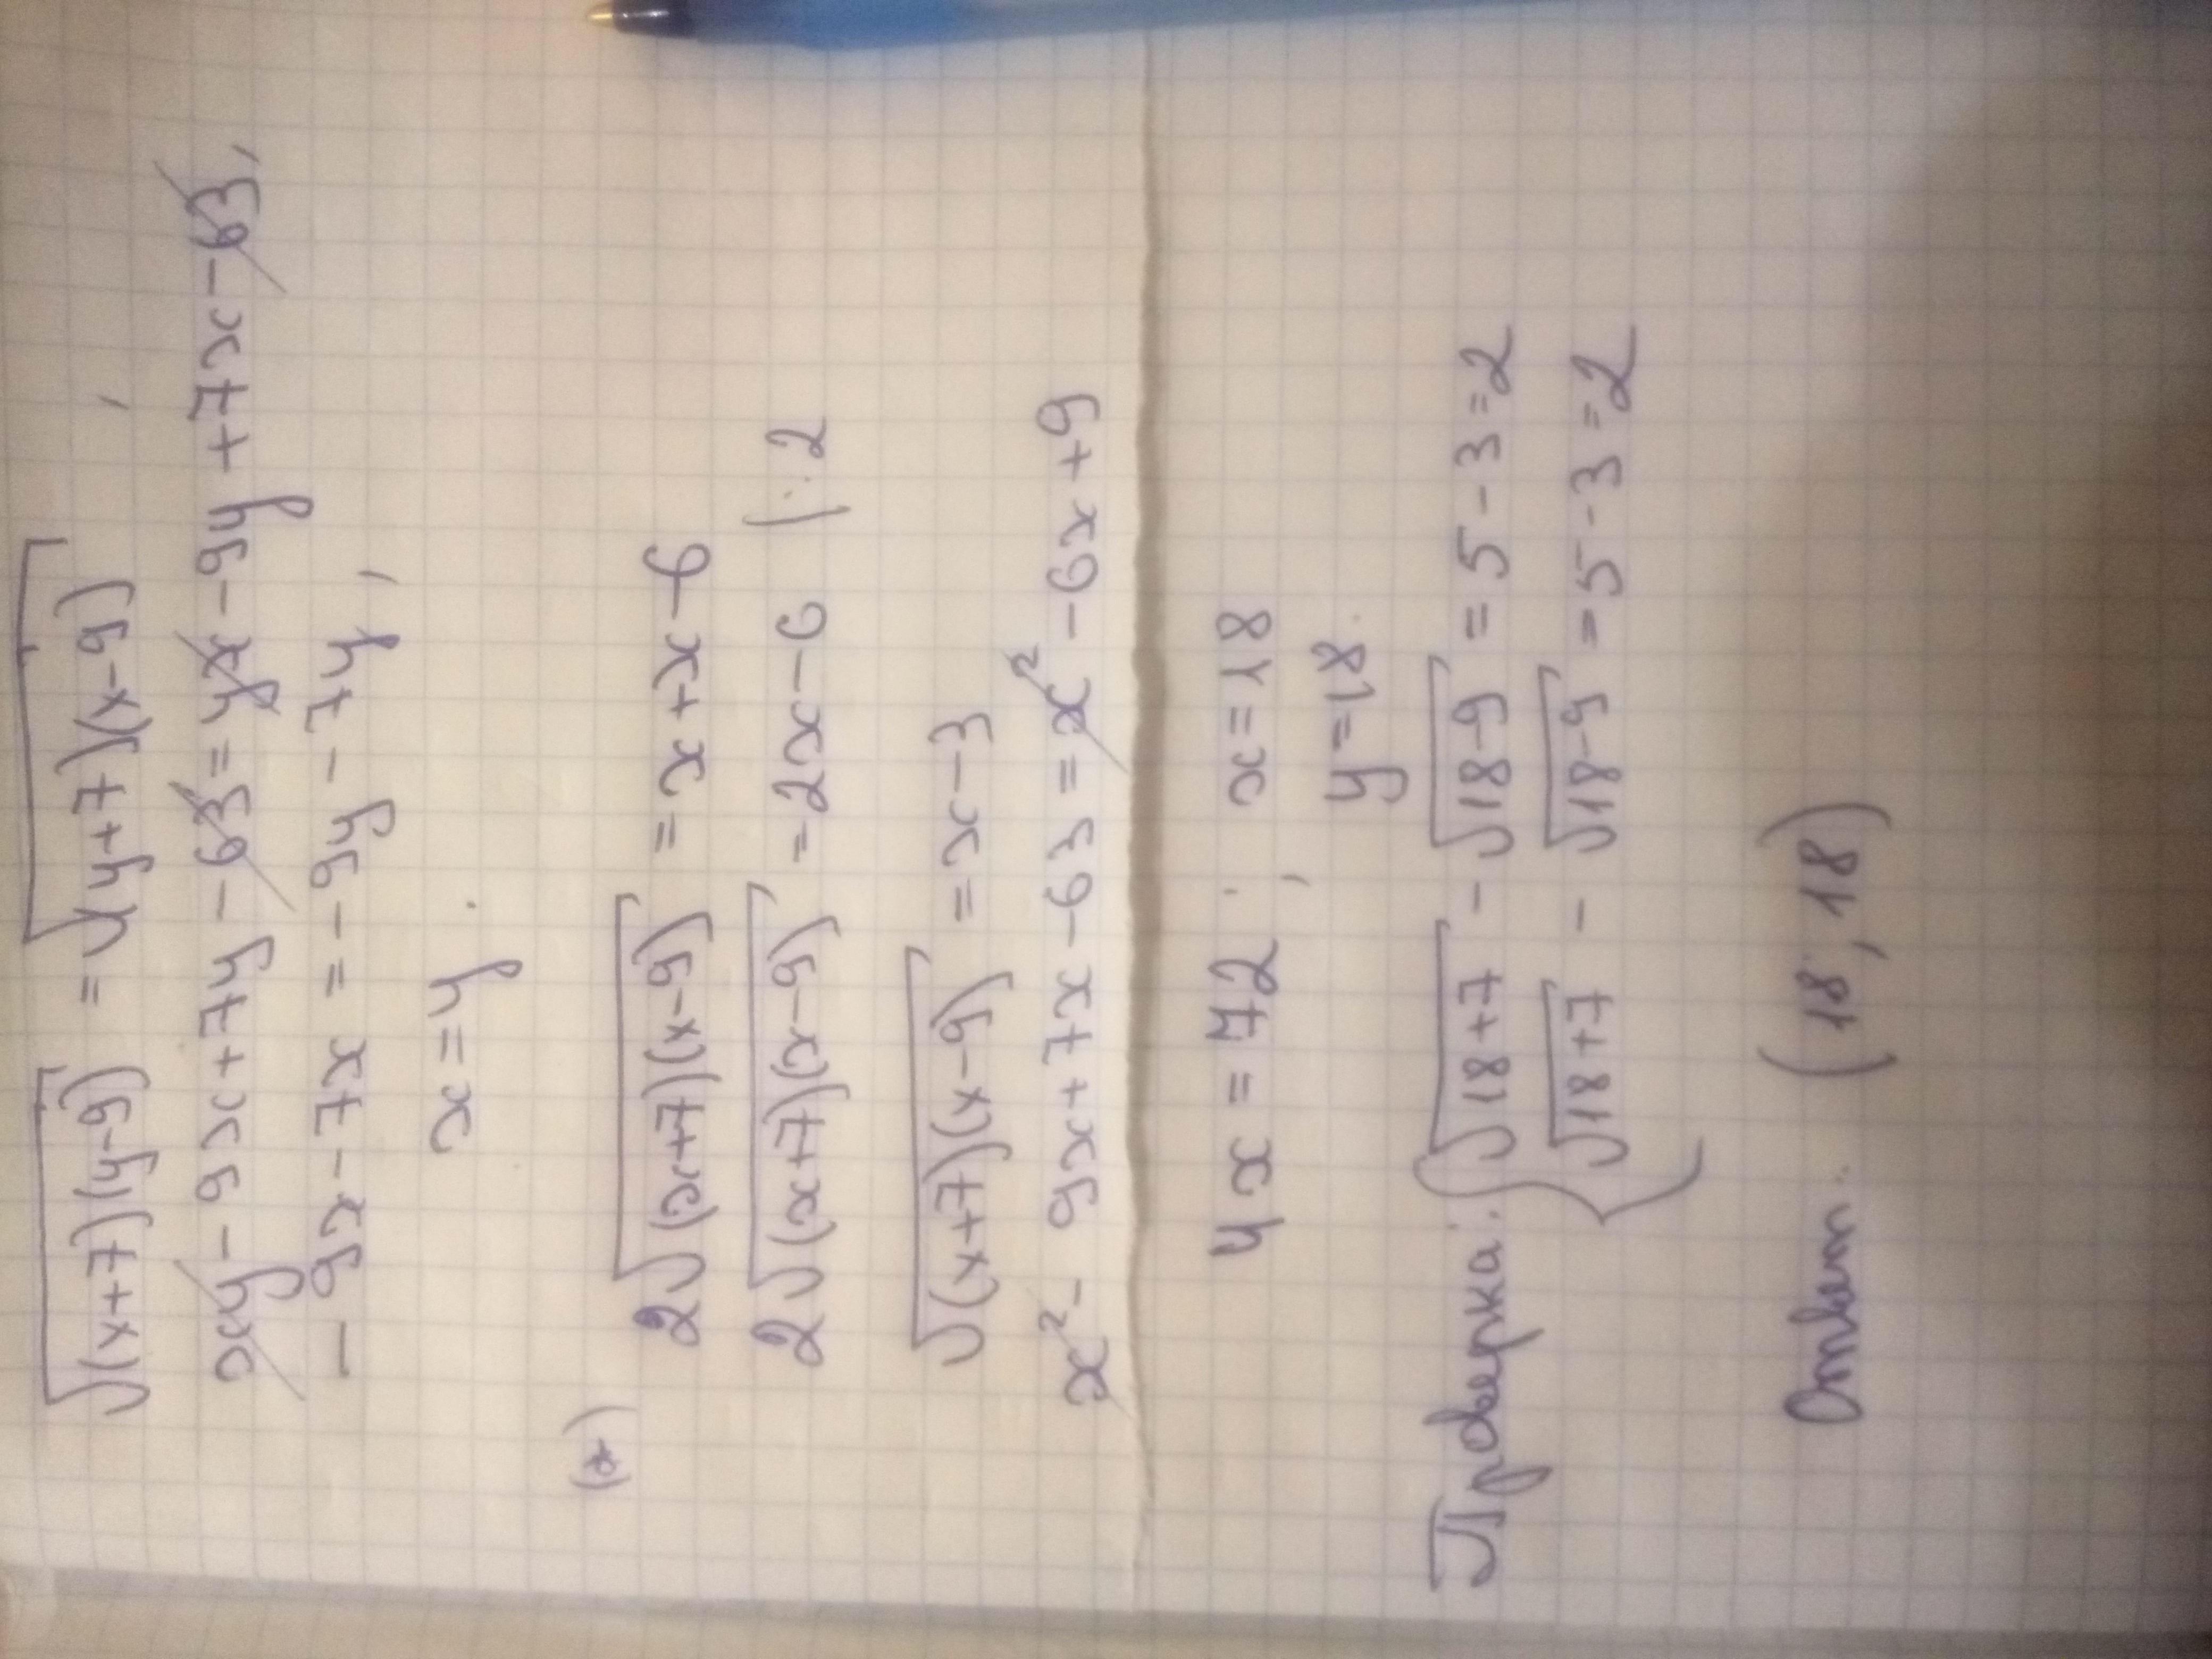 √(x+7)(y-9) = √(y+7)(x-9) ,
xy - 9x + 7y - 63 = yx - 9y + 7x - 63,
- 9x - 7x = - 9y - 7y,
x = y.
(*) 2√(x+7)(x-9) = x + x - 6
2√(x+7)(x-9) = 2x - 6 |:2
√(x+7)(x-9) = x - 3
x² - 9x + 7x - 63 = x² - 6x + 9
4x = 72 ; x = 18
y = 18.
Проверка: { √18+7 - √18-9 = 5 - 3 = 2
√18+7 - √18-9 = 5 - 3 = 2
Ответ: (18; 18)